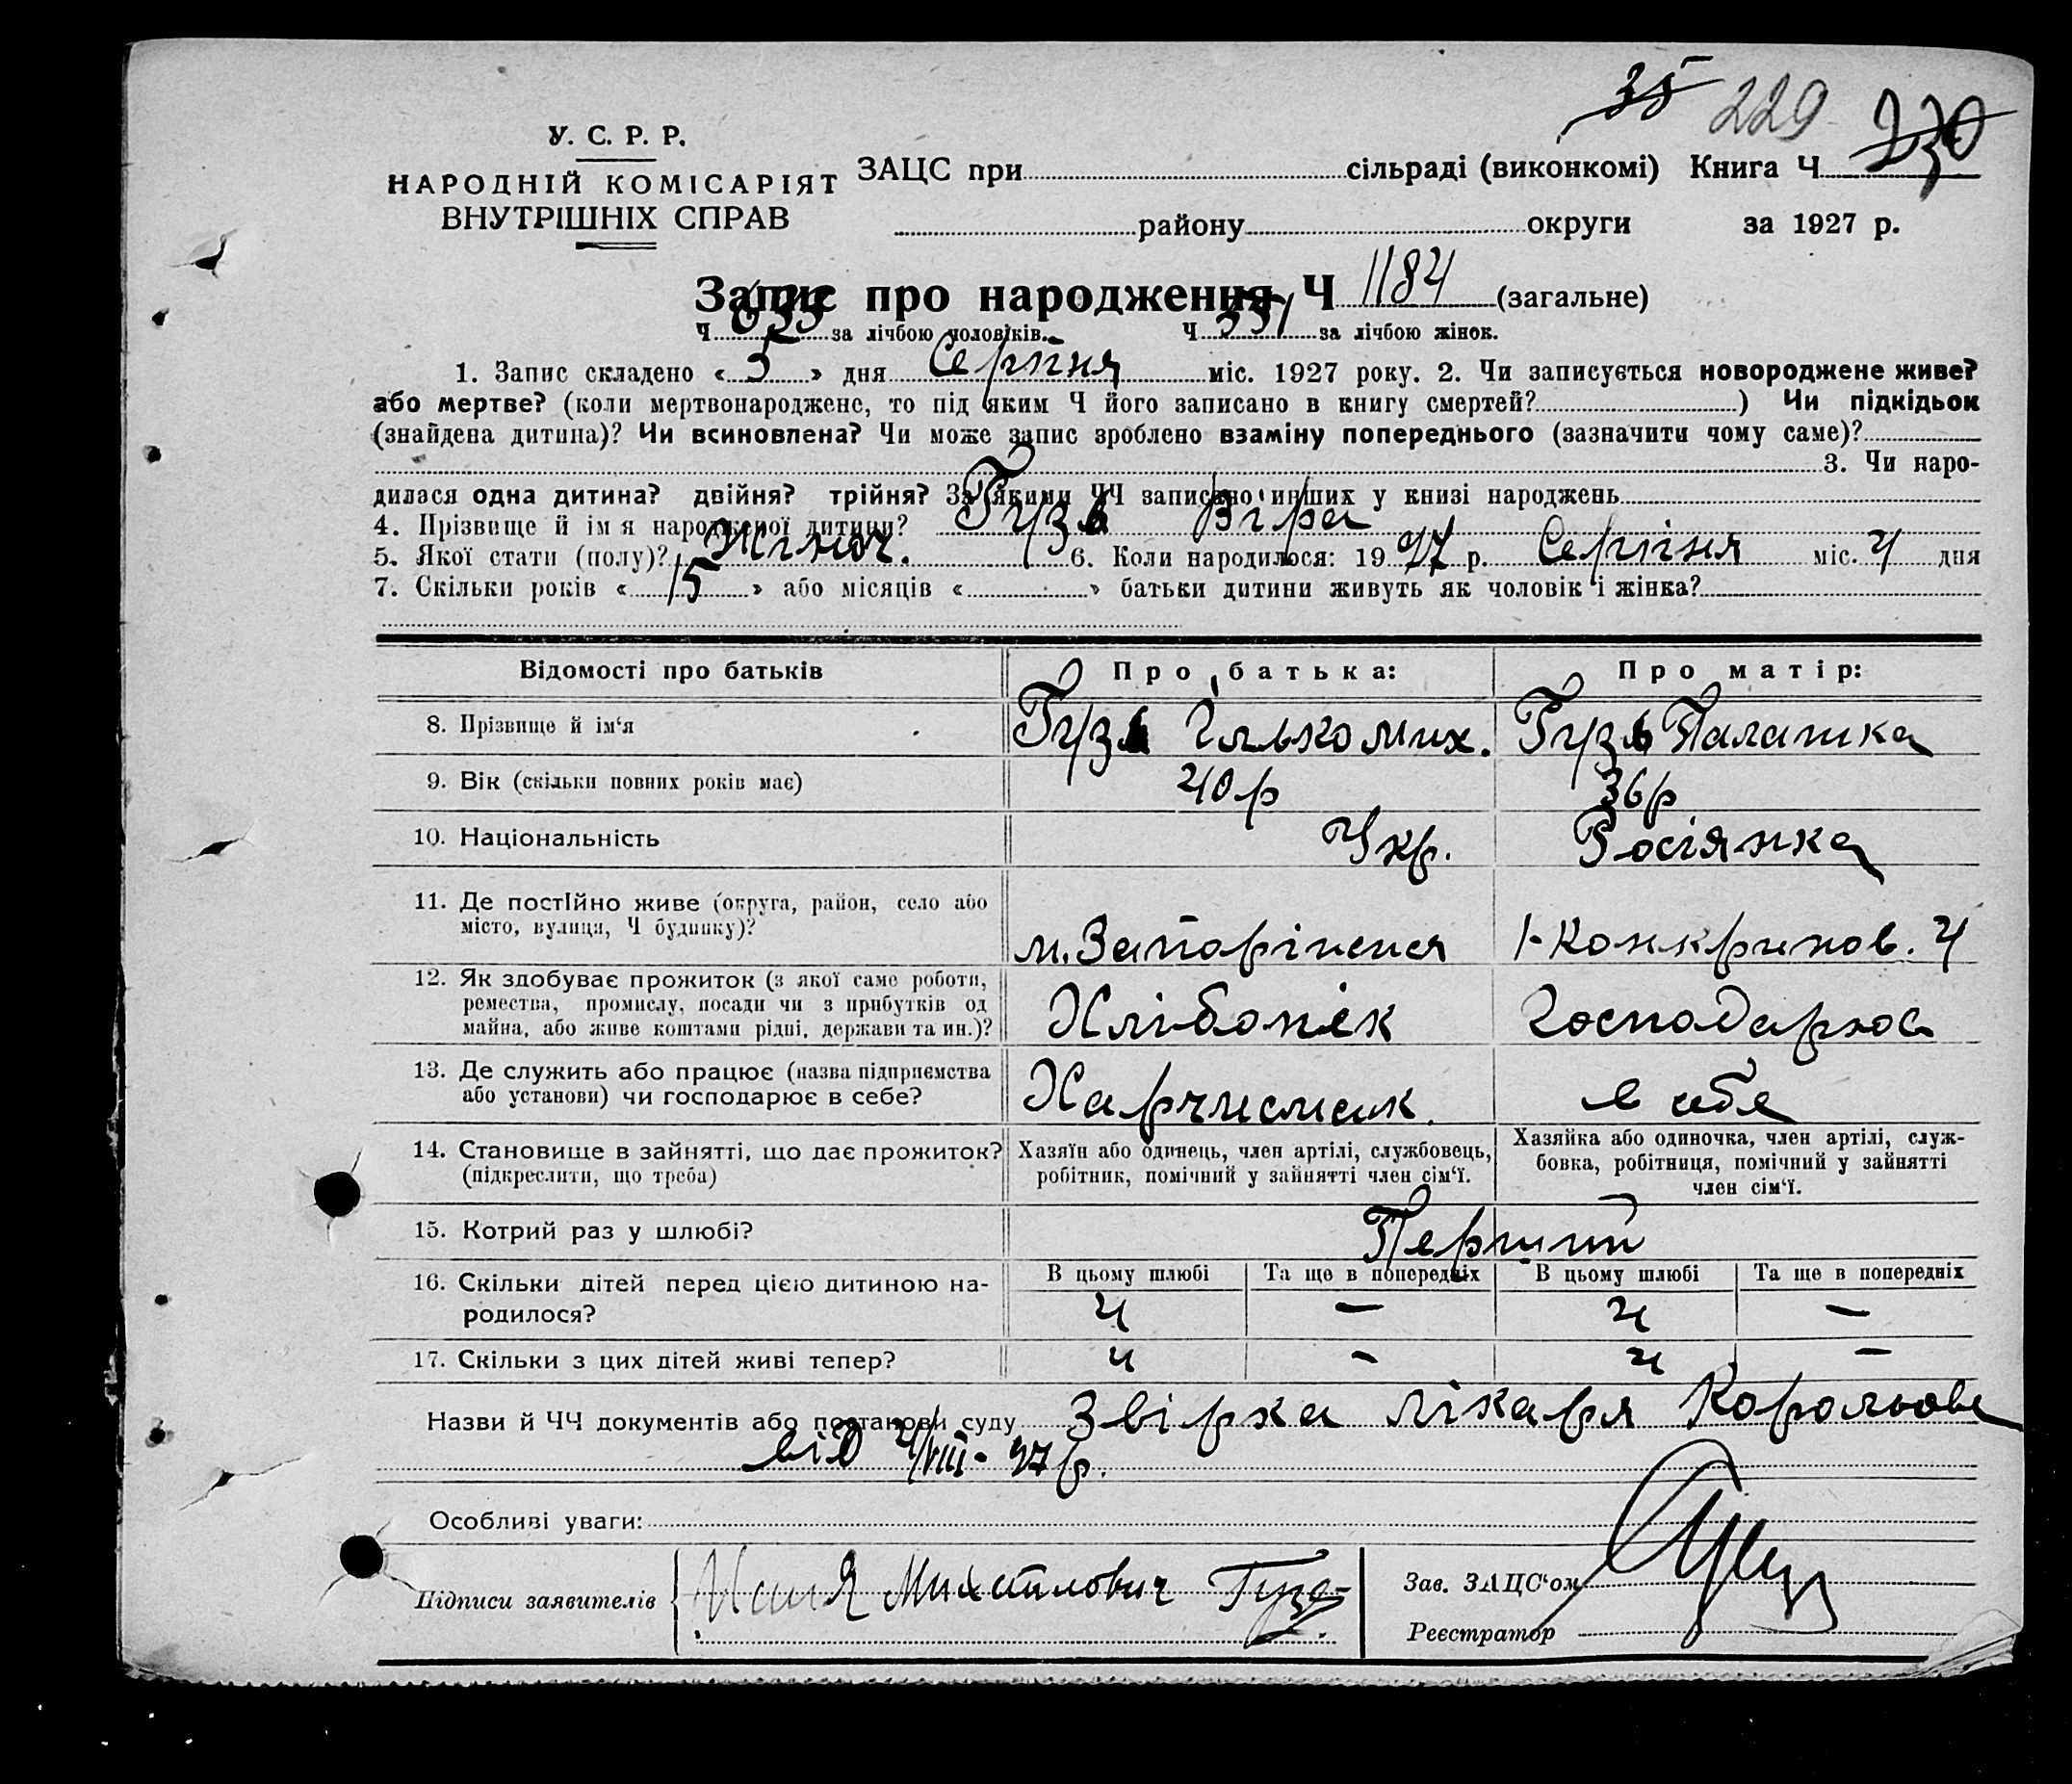 35 229 230
У. С. Р. Р.
НАРОДНІЙ КОМІСАРІЯТ
ВНУТРІШНІХ СПРАВ
ЗАЦС при сільраді (виконкомі) Книга Ч
району округи за 1927 р.
Запис про народження Ч 1184 (загальне)
Ч 633 за лічбою чоловіків. Ч 551 за лічбою жінок.
1. Запис складено « 5 » дня Серпня міс. 1927 року. 2. Чи записується новороджене живе?
або мертве? (коли мертвонароджене, то під яким Ч його записано в книгу смертей? ) Чи підкідьок
(знайдена дитина)? Чи всиновлена? Чи може запис зроблено взаміну попереднього (зазначити чому саме)?
3. Чи наро-
дилася одна дитина? двійня? трійня? За якими ЧЧ записано инших у книзі народжень
4. Прізвище й ім я народженої дитини? Гузь Віра
5. Якої стати (полу)? Жіноч. 6. Коли народилося: 19 27 р. Серпня міс. 4 дня
7. Скільки років « 15 » або місяців « » батьки дитини живуть як чоловік і жінка?
Відомості про батьків Про батька: Про матір:
8. Прізвище й ім‘я Гузь Ілько Мих. Гузь Палашка
9. Вік (скільки повних років має) 40 р 36 р
10. Національність Укр. Росіянка
11. Де постійно живе (округа, район, село або
місто, вулиця, Ч будинку)? м. Запоріжжя 1-Конкринов. 4
12. Як здобуває прожиток (з якої саме роботи,
ремества, промислу, посади чи з прибутків од
майна, або живе коштами рідні, держави та ин.)? Хлібопек Господарює
13. Де служить або працює (назва підприємства
або установи) чи господарює в себе? Харчисмак. в себе
14. Становище в зайнятті, що дає прожиток?
(підкреслити, що треба)
Хазяїн або одинець, член артілі, службовець,
робітник, помічний у зайнятті член сім‘ї.
Хазяйка або одиночка, член артілі, служ-
бовка, робітниця, помічний у зайнятті
член сім‘ї.
15. Котрий раз у шлюбі? Перший
16. Скільки дітей перед цією дитиною на-
родилося?
В цьому шлюбі Та ще в попередніх В цьому шлюбі Та ще в попередніх
4 — 4 —
17. Скільки з цих дітей живі тепер? 4 - 4 —
Назви й ЧЧ документів або постанови суду Звірка лікаря Корольова
від 4/VIII-27 р.
Особливі уваги:
Підписи заявителів Илия Михайлович Гузь
Зав. ЗАЦС‘ом
Реєстратор